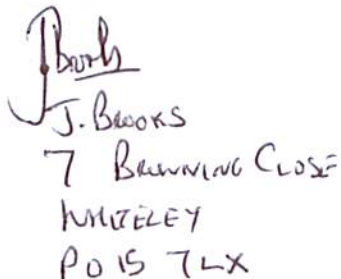 JBrooks
J. BROOKS
7 BROWNING CLOSE
WHITELEY
PO15 7LX